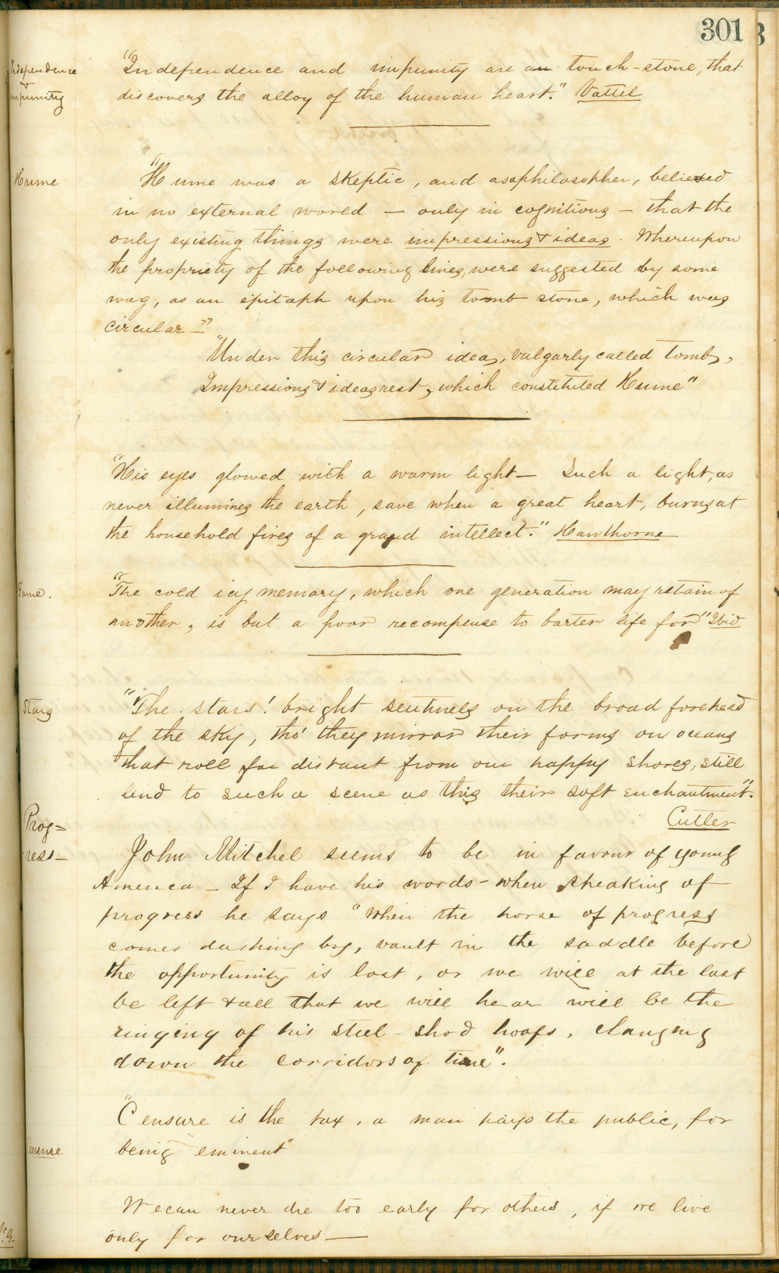 301
Independence
&
impunity
"Independence and impunity are an touch-stone, that
discovers the alloy of the human heart." Vattel
Hume
"Hume was a skeptic, and as a philosopher, believed
in no external world — only in cognitions — that the
only existing things were impressions & ideas. Whereupon
the propriety of the following lines, were suggested by some
wag, as an epitaph upon his tomb stone, which was
circular —"
"Under this circular idea, vulgarly called tomb,
Impressions & ideas rest, which constituted Hume"
"His eyes glowed with a warm light — Such a light, as
never illumines the earth, save when a great heart, burns at
the household fires of a grand intellect." Hawthorne
Fame.
"The cold icy memory, which one generation may retain of
another, is but a poor recompense to barter life for" Ibid
Stars
"The stars! bright sentinels on the broad forehead
of the sky, tho' they mirror their forms on oceans
that roll far distant from our happy shores, still
lend to such a scene as this their soft enchantment".
Cutler
Prog-
ress—
John Mitchel seems to be in favour of young
America — If I have his words — when speaking of
progress he says "When the horse of progress
comes dashing by, vault in the saddle before
the opportunity is lost, or we will at the last
be left & all that we will hear will be the
ringing of his steel-shod hoofs, clanging
down the corridors of time".
Censure
"Censure is the tax, a man pays the public, for
being eminent"
We can never die too early for others, if we live
only for ourselves —